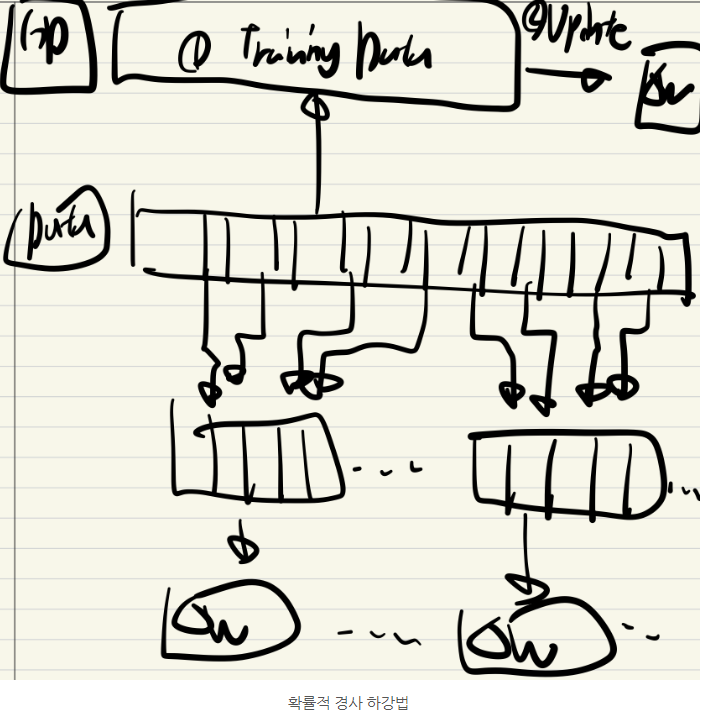 GD
① Training Data
② Update
Δw
Data
Δw
Δw
확률적 경사 하강법